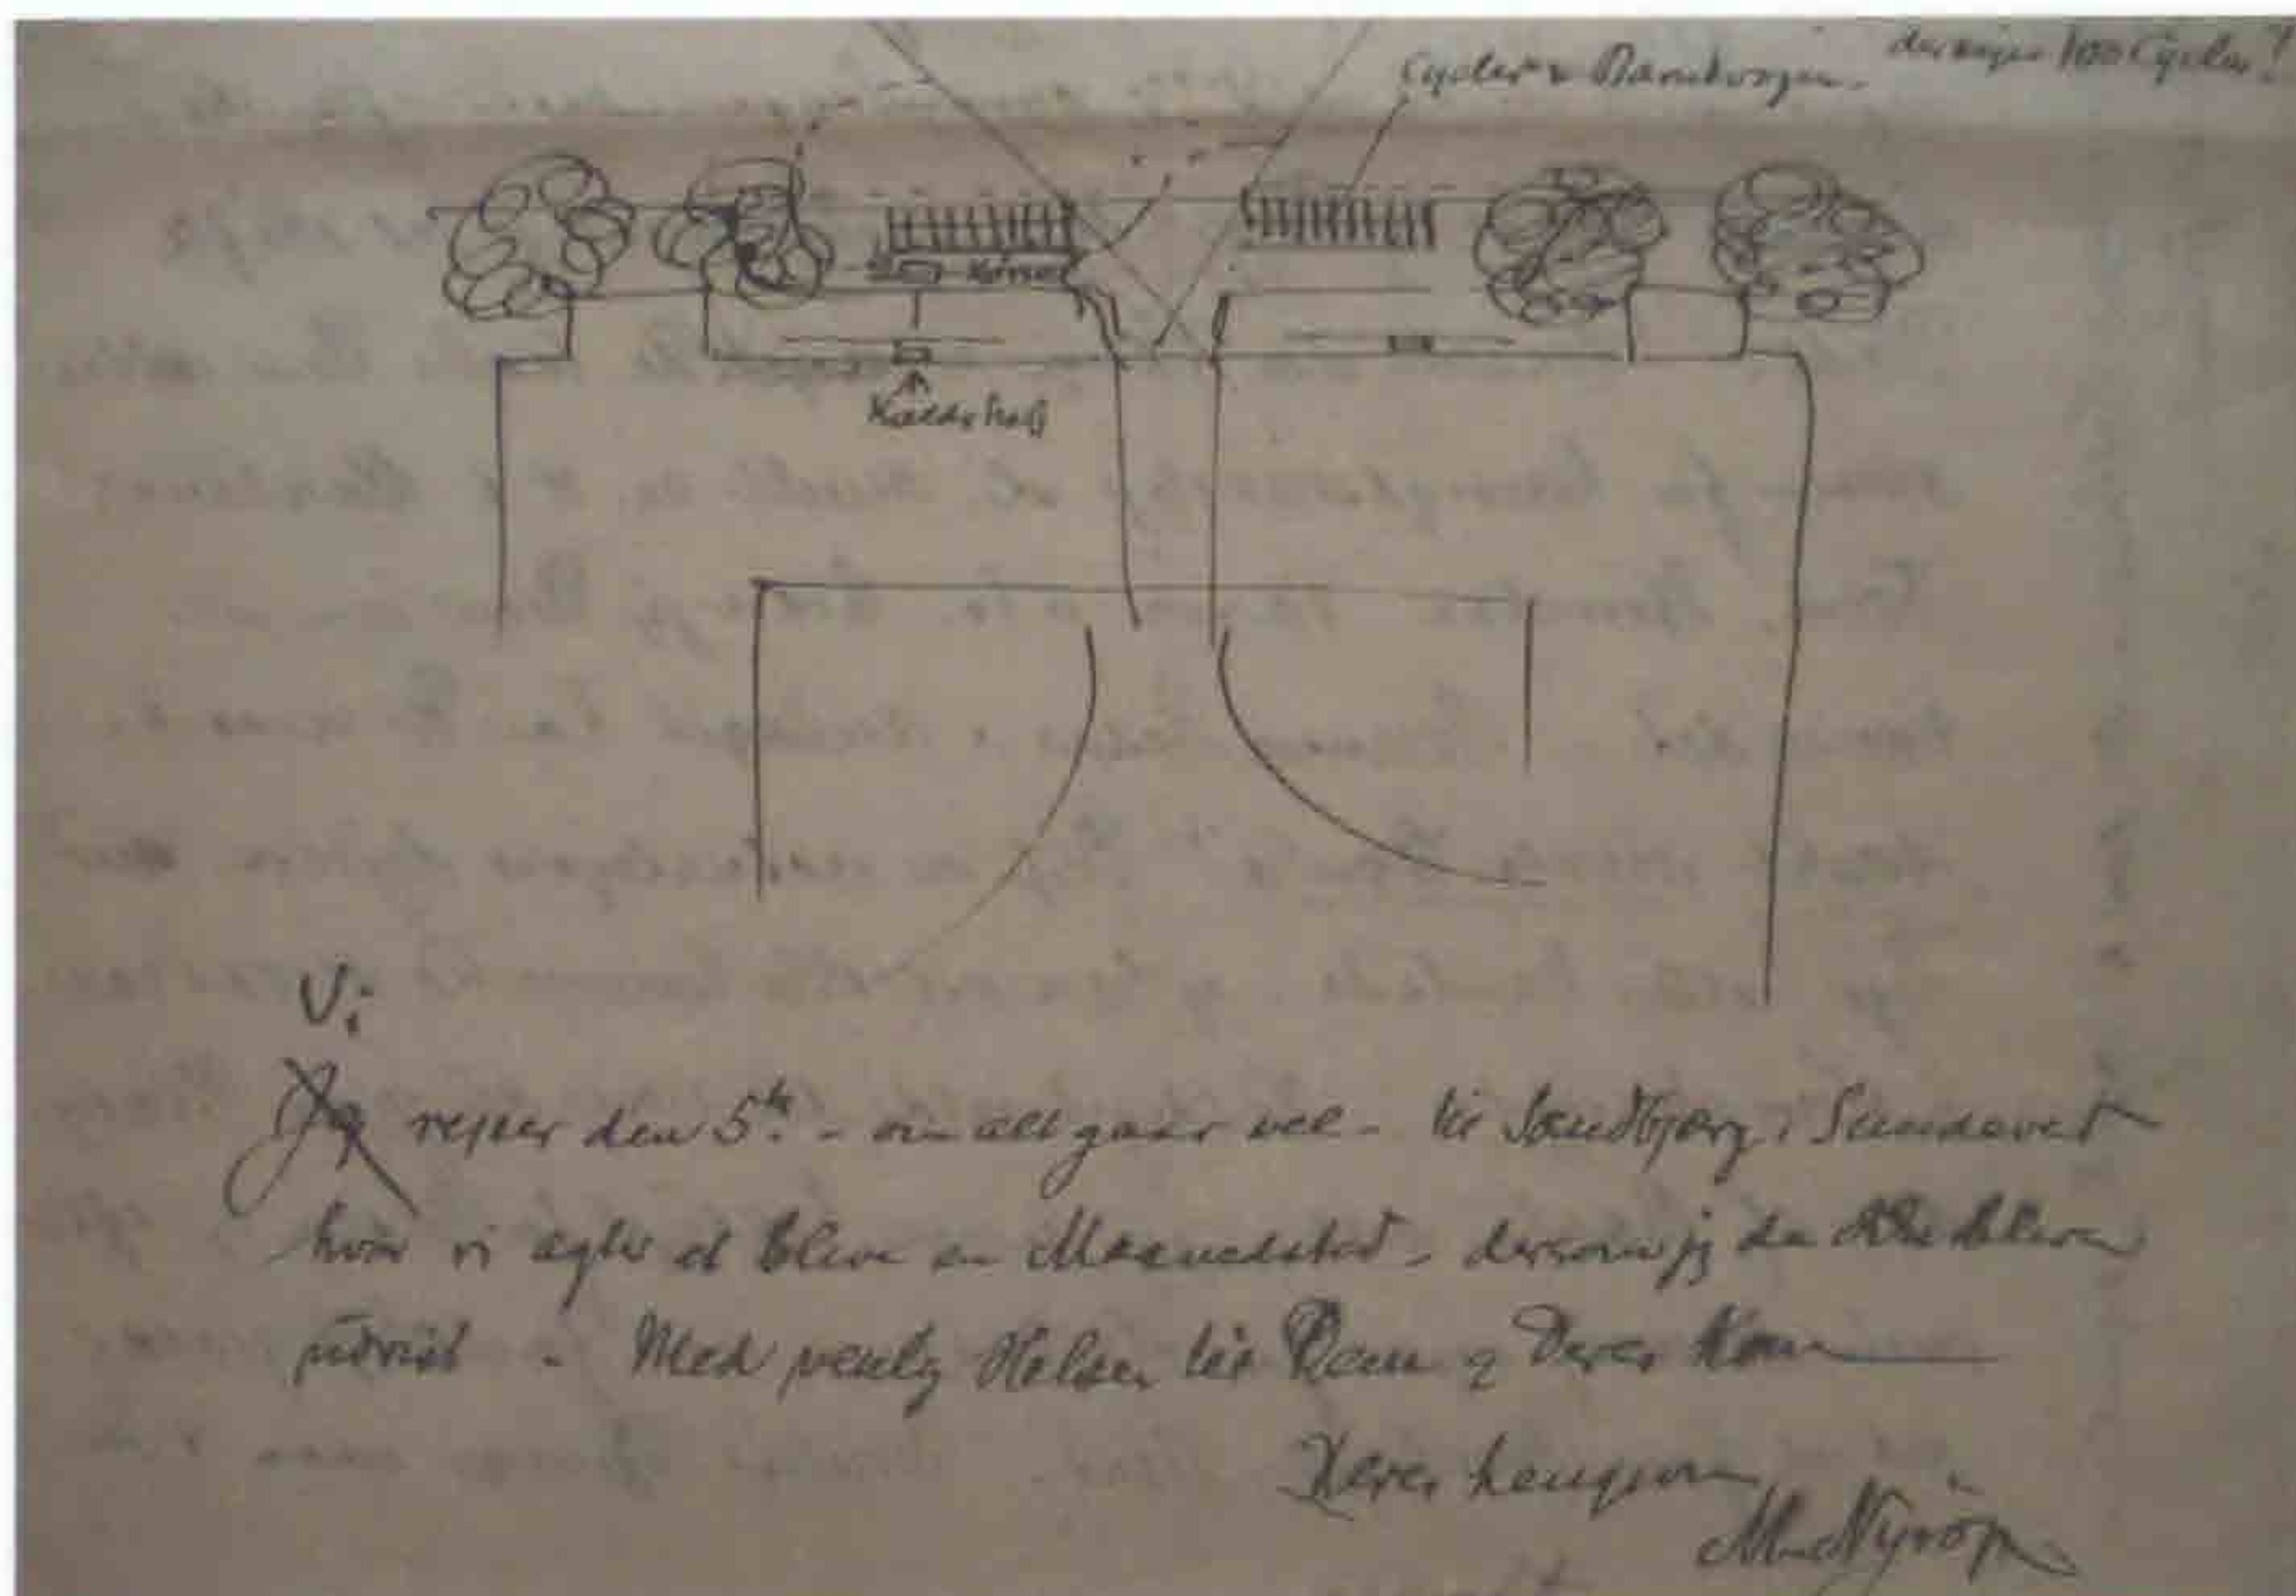 Cycler & Barnevogne.
100 Cycler!
Kælderhals
Vi
Jeg rejser den 5te - om alt gaar vel - til Sandbjerg i Sundeved
hvor vi agter at blive en Maanedstid - dersom jeg da ikke bliver
udvist - Med venlig Hilsen til Dem & Deres Kone
Deres hengivne
M. Nyrop